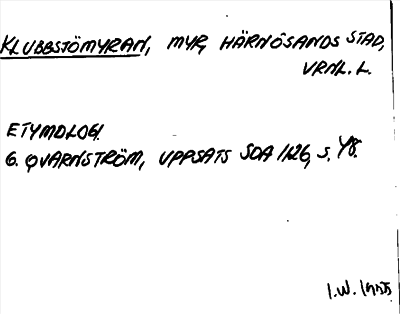 KLUBBSTÖMYRAN, MYR, HÄRNÖSANDS STAD,
VRNL. L.
ETYMOLOGI
G. QVARNSTRÖM, UPPSATS SOA 1126, S. 48.
I.W. 1955